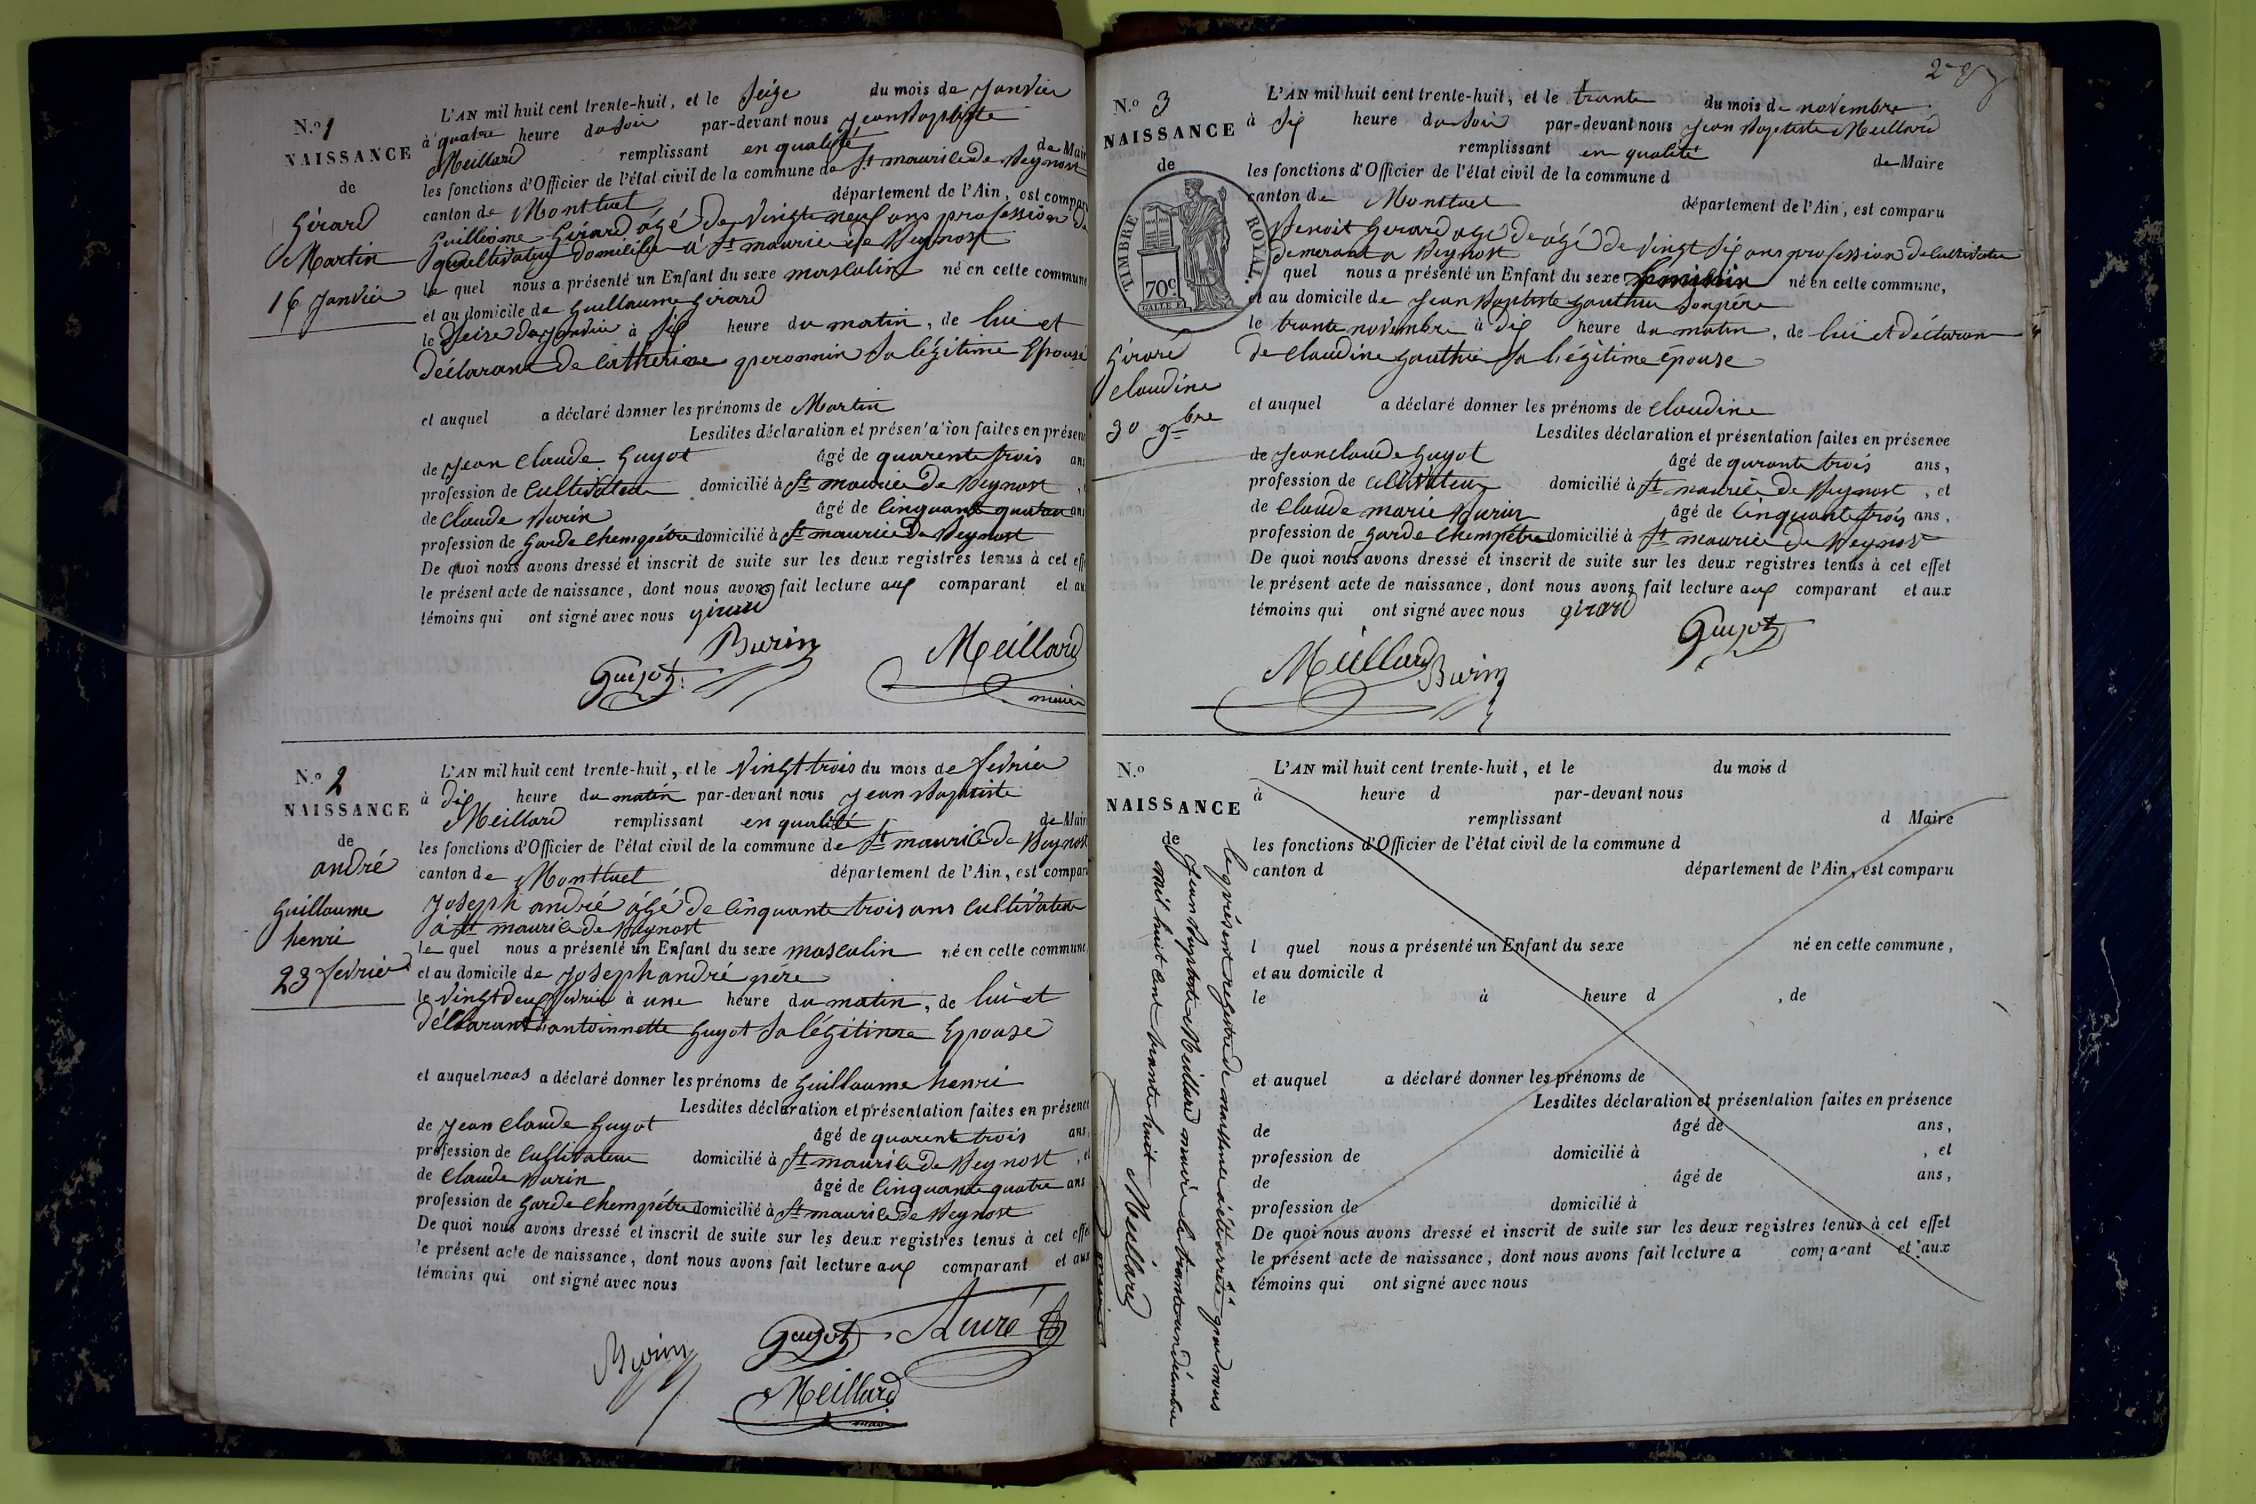 N.º 1
NAISSANCE
de
Girard
Martin
16 Janvier
L'AN mil huit cent trente-huit, et le Seize du mois de Janvier
à quatre heure du Soir par-devant nous Jean Baptiste
Meillard remplissant en qualité de Mair
les fonctions d'Officier de l'état civil de la commune de St maurice de Beynost
canton de Montluel département de l'Ain, est compar
Guilleome Girard âgé de Vingt neuf ans profession de
cultivateur domicilié à St maurice de Beynost
le quel nous a présenté un Enfant du sexe masculin né en cette commune
et au domicile de Guillaume Girard
le Seize de Janvier à Six heure du matin, de lui et
déclarant de Catherine peronnin Sa légitime Epouse
et auquel a déclaré donner les prénoms de Martin
Lesdites déclaration et présen'a'ion faites en présenc
de Jean Claude Guyot âgé de quarente trois ans
profession de Cultivateur domicilié à St maurice de Beynost
de Claude Burin âgé de Cinquante quatre ans
profession de Garde Chempétre domicilié à St maurice de Beynost
De quoi nous avons dressé et inscrit de suite sur les deux registres tenus à cet eff
le présent acte de naissance, dont nous avons fait lecture aux comparant et au
témoins qui ont signé avec nous girard
Burin
Meillard
Guyot
maire
N.º 2
NAISSANCE
de
andré
Guillaume
henri
23 fevrier
L'AN mil huit cent trente-huit, et le Vingt trois du mois de fevrier
à dix heure du matin par-devant nous Jean Baptiste
Meillard remplissant en qualité de Mair
les fonctions d'Officier de l'état civil de la commune de St maurice de Beynost
canton de Montluel département de l'Ain, est compar
Joseph andré âgé de Cinquante trois ans Cultivateur
à St maurice de Beynost
le quel nous a présenté un Enfant du sexe masculin né en cette commune
et au domicile de Joseph andré père
le Vingt deux fevrier à une heure du matin, de lui et
déclarant d'antoinnette Guyot Sa légitime Epouse
et auquel nous a déclaré donner les prénoms de Guillaume henri
Lesdites déclaration et présentation faites en présence
de Jean Claude Guyot âgé de quarente trois ans
profession de Cultivateur domicilié à St maurice de Beynost, et
de Claude Burin âgé de Cinquante quatre ans
profession de Garde Chempétre domicilié à St maurice de Beynost
De quoi nous avons dressé et inscrit de suite sur les deux registres tenus à cet effe
le présent acte de naissance, dont nous avons fait lecture aux comparant et aux
témoins qui ont signé avec nous
Guyot André
Burin
Meillard
maire
N.º 3
NAISSANCE
de
TIMBRE ROYAL.
70c
Girard
Claudine
30 9bre
L'AN mil huit cent trente-huit, et le trante du mois de novembre
à Six heure du Soir par-devant nous Jean Baptiste Meillard
remplissant en qualité de Maire
les fonctions d'Officier de l'état civil de la commune d
canton de Montluel département de l'Ain, est comparu
Benoit Gerard age de âgé de Vingt Six ans profession de Cultivateur
demerant a Beynost
quel nous a présenté un Enfant du sexe feminin né en cette commune,
et au domicile de Jean Baptiste Gauthier Son père
le trante novembre à dix heure du matin, de lui et déclaron
de Claudine Gauthier Sa légitime épouse
et auquel a déclaré donner les prénoms de Claudine
Lesdites déclaration et présentation faites en présence
de Jean Claude Guyot âgé de qurante trois ans,
profession de Cultivateur domicilié à St maurice de Beynost, et
de Claude marie Burin âgé de Cinquante trois ans,
profession de Garde Chempétre domicilié à St maurice de Beynost
De quoi nous avons dressé et inscrit de suite sur les deux registres tenus à cet effet
le présent acte de naissance, dont nous avons fait lecture aux comparant et aux
témoins qui ont signé avec nous girard
Guyot
Meillard Burin
N.º
NAISSANCE
de
L'AN mil huit cent trente-huit, et le du mois d
à heure d par-devant nous
remplissant d Maire
les fonctions d'Officier de l'état civil de la commune d
canton d département de l'Ain, est comparu
l quel nous a présenté un Enfant du sexe né en cette commune,
et au domicile d
le à heure d , de
et auquel a déclaré donner les prénoms de
Lesdites déclaration et présentation faites en présence
de âgé de ans,
profession de domicilié à , et
de âgé de ans,
profession de domicilié à
De quoi nous avons dressé et inscrit de suite sur les deux registres tenus à cet effet
le présent acte de naissance, dont nous avons fait lecture a comparant et aux
témoins qui ont signé avec nous
le présent registre de naissance a été arrêté par nous
Jean Baptiste Meillard maire le trante un décembre
mil huit cent trante huit Meillard